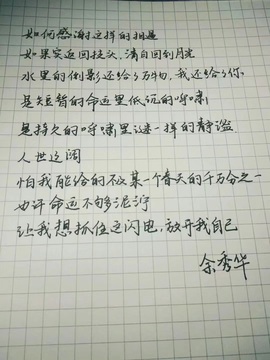 如何感谢这样的相遇
如果突返回枝头，清白回到月光
水里的倒影还给了万物，我还给了你
是短暂的命运里低沉的呼啸
是持久的呼啸里谜一样的静谧
人世辽阔
怕我能给的不及某一个春天的千万分之一
也许命运不够泥泞
让我想抓住这闪电，放开我自己
余秀华